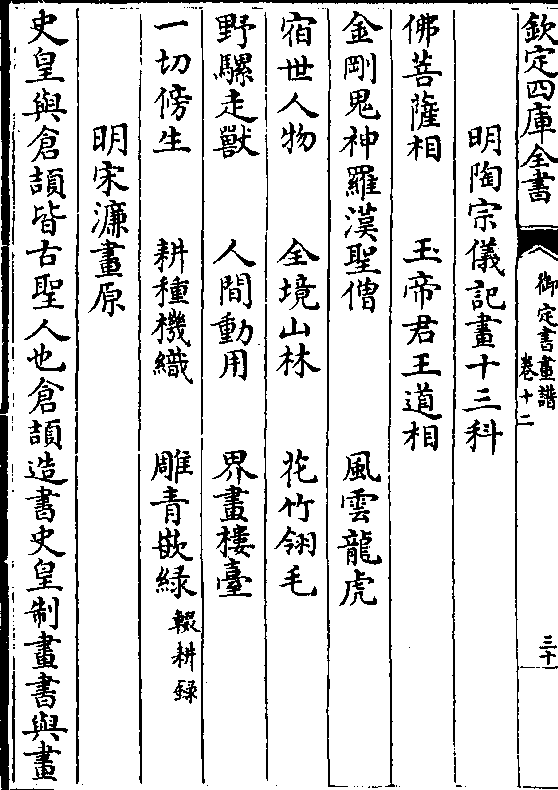 欽定四庫全書
御定書畫譜
卷十二
三十
明陶宗儀記畫十三科
佛菩薩相 玉帝君王道相
金剛鬼神羅漢聖僧 風雲龍虎
宿世人物 全境山林 花竹翎毛
野騾走獸 人間動用 界畫樓臺
一切傍生 耕種機織 雕青嵌緑 輟耕録
明宋濂畫原
史皇與倉頡皆古聖人也倉頡造書史皇制畫書與畫